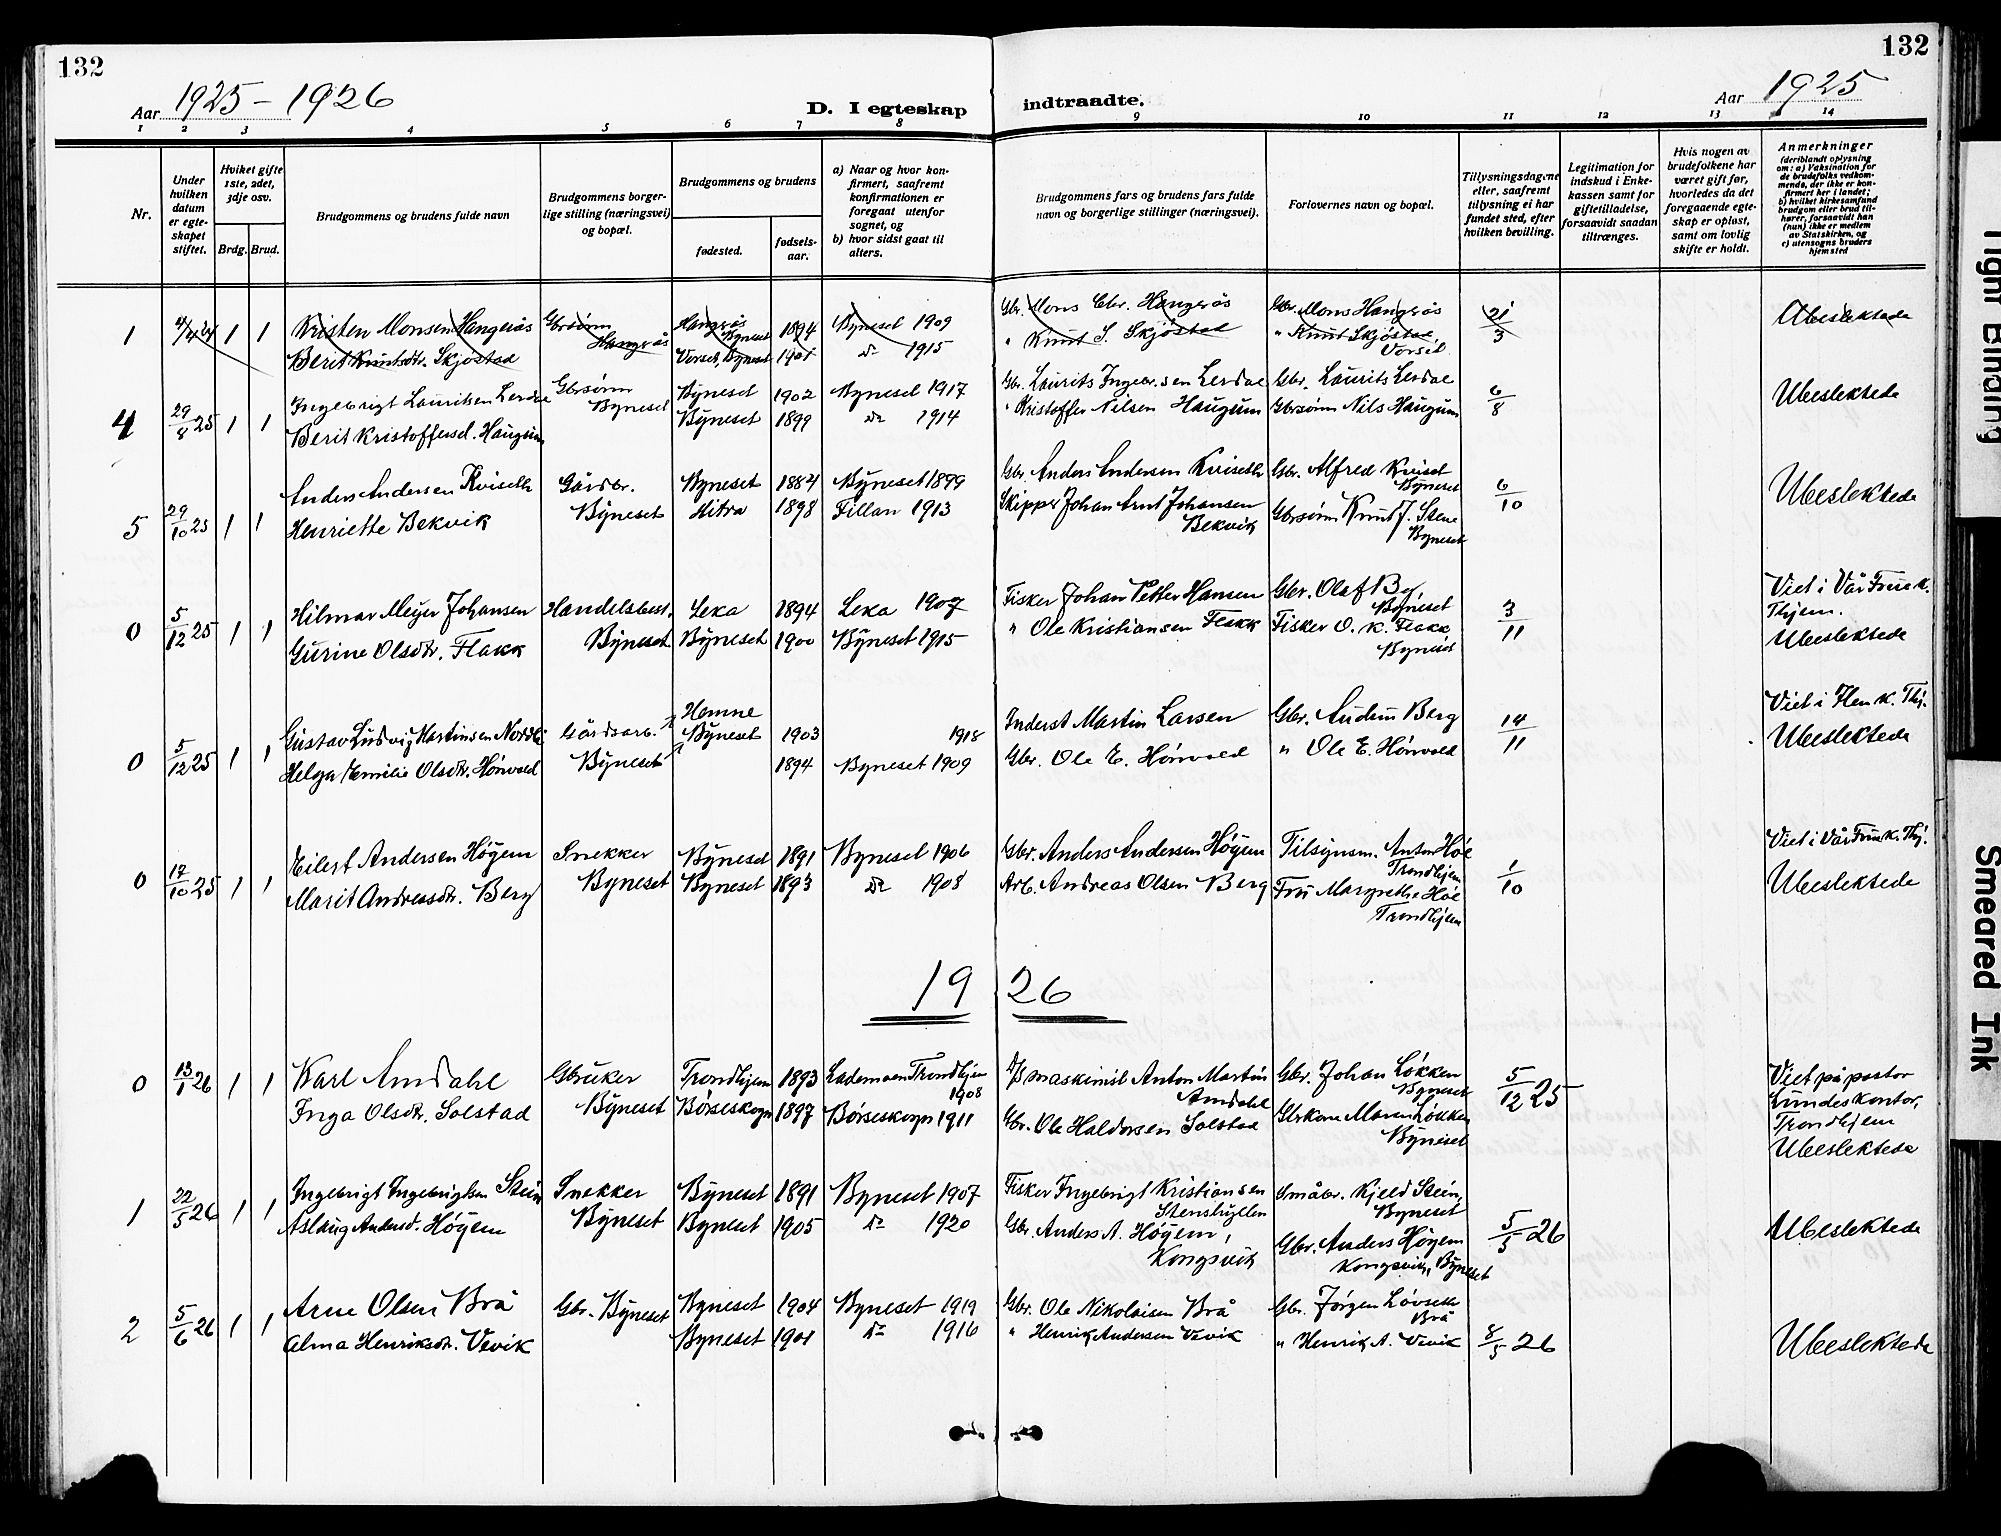 132
132
Aar 1925 - 1926
D. I egteskap indtraadte.
Aar 1925
1 2 3 4 5 6 7 8 9 10 11 12 13 14
Nr.
Under hvilken datum er egte-skapet stiftet.
Hviket gifte 1ste, 2det, 3dje osv.
Brdg. Brud.
Brudgommens og brudens fulde navn
Brudgommens borger-lige stilling (næringsvei) og bopæl.
Brudgommens og brudens
fødested.
fødsels-aar.
a) Naar og hvor kon-firmert, saafremt konfirmationen er foregaat utenfor sognet, og
b) hvor sidst gaat til alters.
Brudgommens fars og brudens fars fulde navn og borgerlige stillinger (næringsvei).
Forlovernes navn og bopæl.
Tillysningsdagene eller, saafremt tillysning ei har fundet sted, efter hvilken bevilling.
Legitimation for indskud i Enke-kassen samt for giftetilladelse, forsaavidt saadan tiltrænges.
Hvis nogen av brudefolkene har været gift før, hvorledes da det foregaaende egte-skap er opløst, samt om lovlig skifte er holdt.
Anmerkninger
(deriblandt oplysning om: a) Vaksination for de brudefolks vedkom-mende, der ikke er kon-firmert her i landet; b) hvilket kirkesamfund brudgom eller brud til-hører, forsaavidt han (hun) ikke er medlem av Statskirken, og c) utensogns bruders hjemsted
1 1 1 Kristen Monsen Hangerås Gbrsønn Hangerås Byneset 1894 Byneset 1909 Gbr. Mons Chr. Hangerås Gbr. Mons Hangerås 21/3 Ubeslektede
Berit Knutsdtr. Skjøstad Hangerås Byneset 1901 do 1915 " Knut S. Skjøstad " Knut Skjøstad,
4 29/8 25 1 1 Ingebrigt Lauritsen Lerdae Gbrsønn Byneset 1902 Byneset 1917 Gbr. Laurits Ingebr.sen Lerdae Gbr. Laurits Lerdae 6/8 Ubeslektede
Berit Kristoffersd. Haugum Byneset Byneset 1899 do 1914 " Kristoffer Nilsen Haugum Gbrsønn Nils Haugum
5 29/10 25 1 1 Anders Andersen Kviseth Gårdbr. Byneset 1884 Byneset 1899 Gbr. Anders Andersen Kviseth Gbr. Alfred Kviset Byneset 6/10 Ubeslektede
Henriette Bekvik Byneset Hitra 1898 Fillan 1913 Skipper Johan Arnt Johansen Bekvik Gbrsønn Knut J. Stene Byneset
0 5/12 25 1 1 Hilmar Meyer Johansen Handelsbest. Leka 1894 Leka 1907 Fisker Johan Petter Hansen Gbr. Olaf By, Byneset 3/11 Viet i Vår Frue k. Thjem.
Gurine Olsdtr. Flakk Byneset Byneset 1900 Byneset 1915 " Ole Kristiansen Flakk Fisker O. K. Flakk, Byneset Ubeslektede
0 5/12 25 1 1 Gustav Ludvig Martinsen Nordli Gårdsarb. Hemne Byneset 1903 1918 Inderst Martin Larsen Gbr. Audun Berg 14/11 Viet i Ilen k. Thj.
Helga Emilie Olsdtr. Hønvold Byneset 1894 Byneset 1909 Gbr. Ole E. Hønvold " Ole E. Hønvold Ubeslektede
0 17/10 25 1 1 Eilert Andersen Høyem Snekker Byneset 1891 Byneset 1906 Gbr. Anders Andersen Høyem Tilsynsm. Anton Høe Trondhjem 1/10 Viet i Vår Frue k. Thj.
Marit Andreasdtr. Berg Byneset Byneset 1893 do 1908 Arb. Andreas Olsen Berg Fru Margrethe Høe Trondhjem Ubeslektede
19 26
0 13/1 26 1 1 Karl Amdahl Gbruker Trondhjem 1893 Lademoen Trondhjem 1908 maskinist Anton Martin Amdahl Gbr. Johan Løkken Byneset 5/12 25 Viet på pastor Lundes kontor, Trondhjem
Inga Olsdtr. Solstad Byneset Børseskogn 1897 Børseskogn 1911 Gbr. Ole Haldorsen Solstad Gbrkone Maren Løkken Byneset Ubeslektede
1 22/5 26 1 1 Ingebrigt Ingebrigtsen Stein Snekker Byneset 1891 Byneset 1907 Fisker Ingebrigt Kristiansen Steinshyllen Småbr. Kjeld Stein, Byneset 5/5 26 Ubeslektede
Aslaug Andersd. Høyem Byneset Byneset 1905 do 1920 Gbr. Anders A. Høyem, Kongsvik Gbr. Anders Høyem Kongsvik, Byneset
2 5/6 26 1 1 Arne Olsen Brå Gbr. Byneset Byneset 1904 Byneset 1919 Gbr. Ole Nikolaisen Brå Gbr. Jørgen Løvseth Brå 8/5 26 Ubeslektede
Alma Henriksdtr. Vevik Byneset 1901 do 1916 " Henrik Andersen Vevik " Henrik A. Vevik
Tight Binding
Smeared Ink